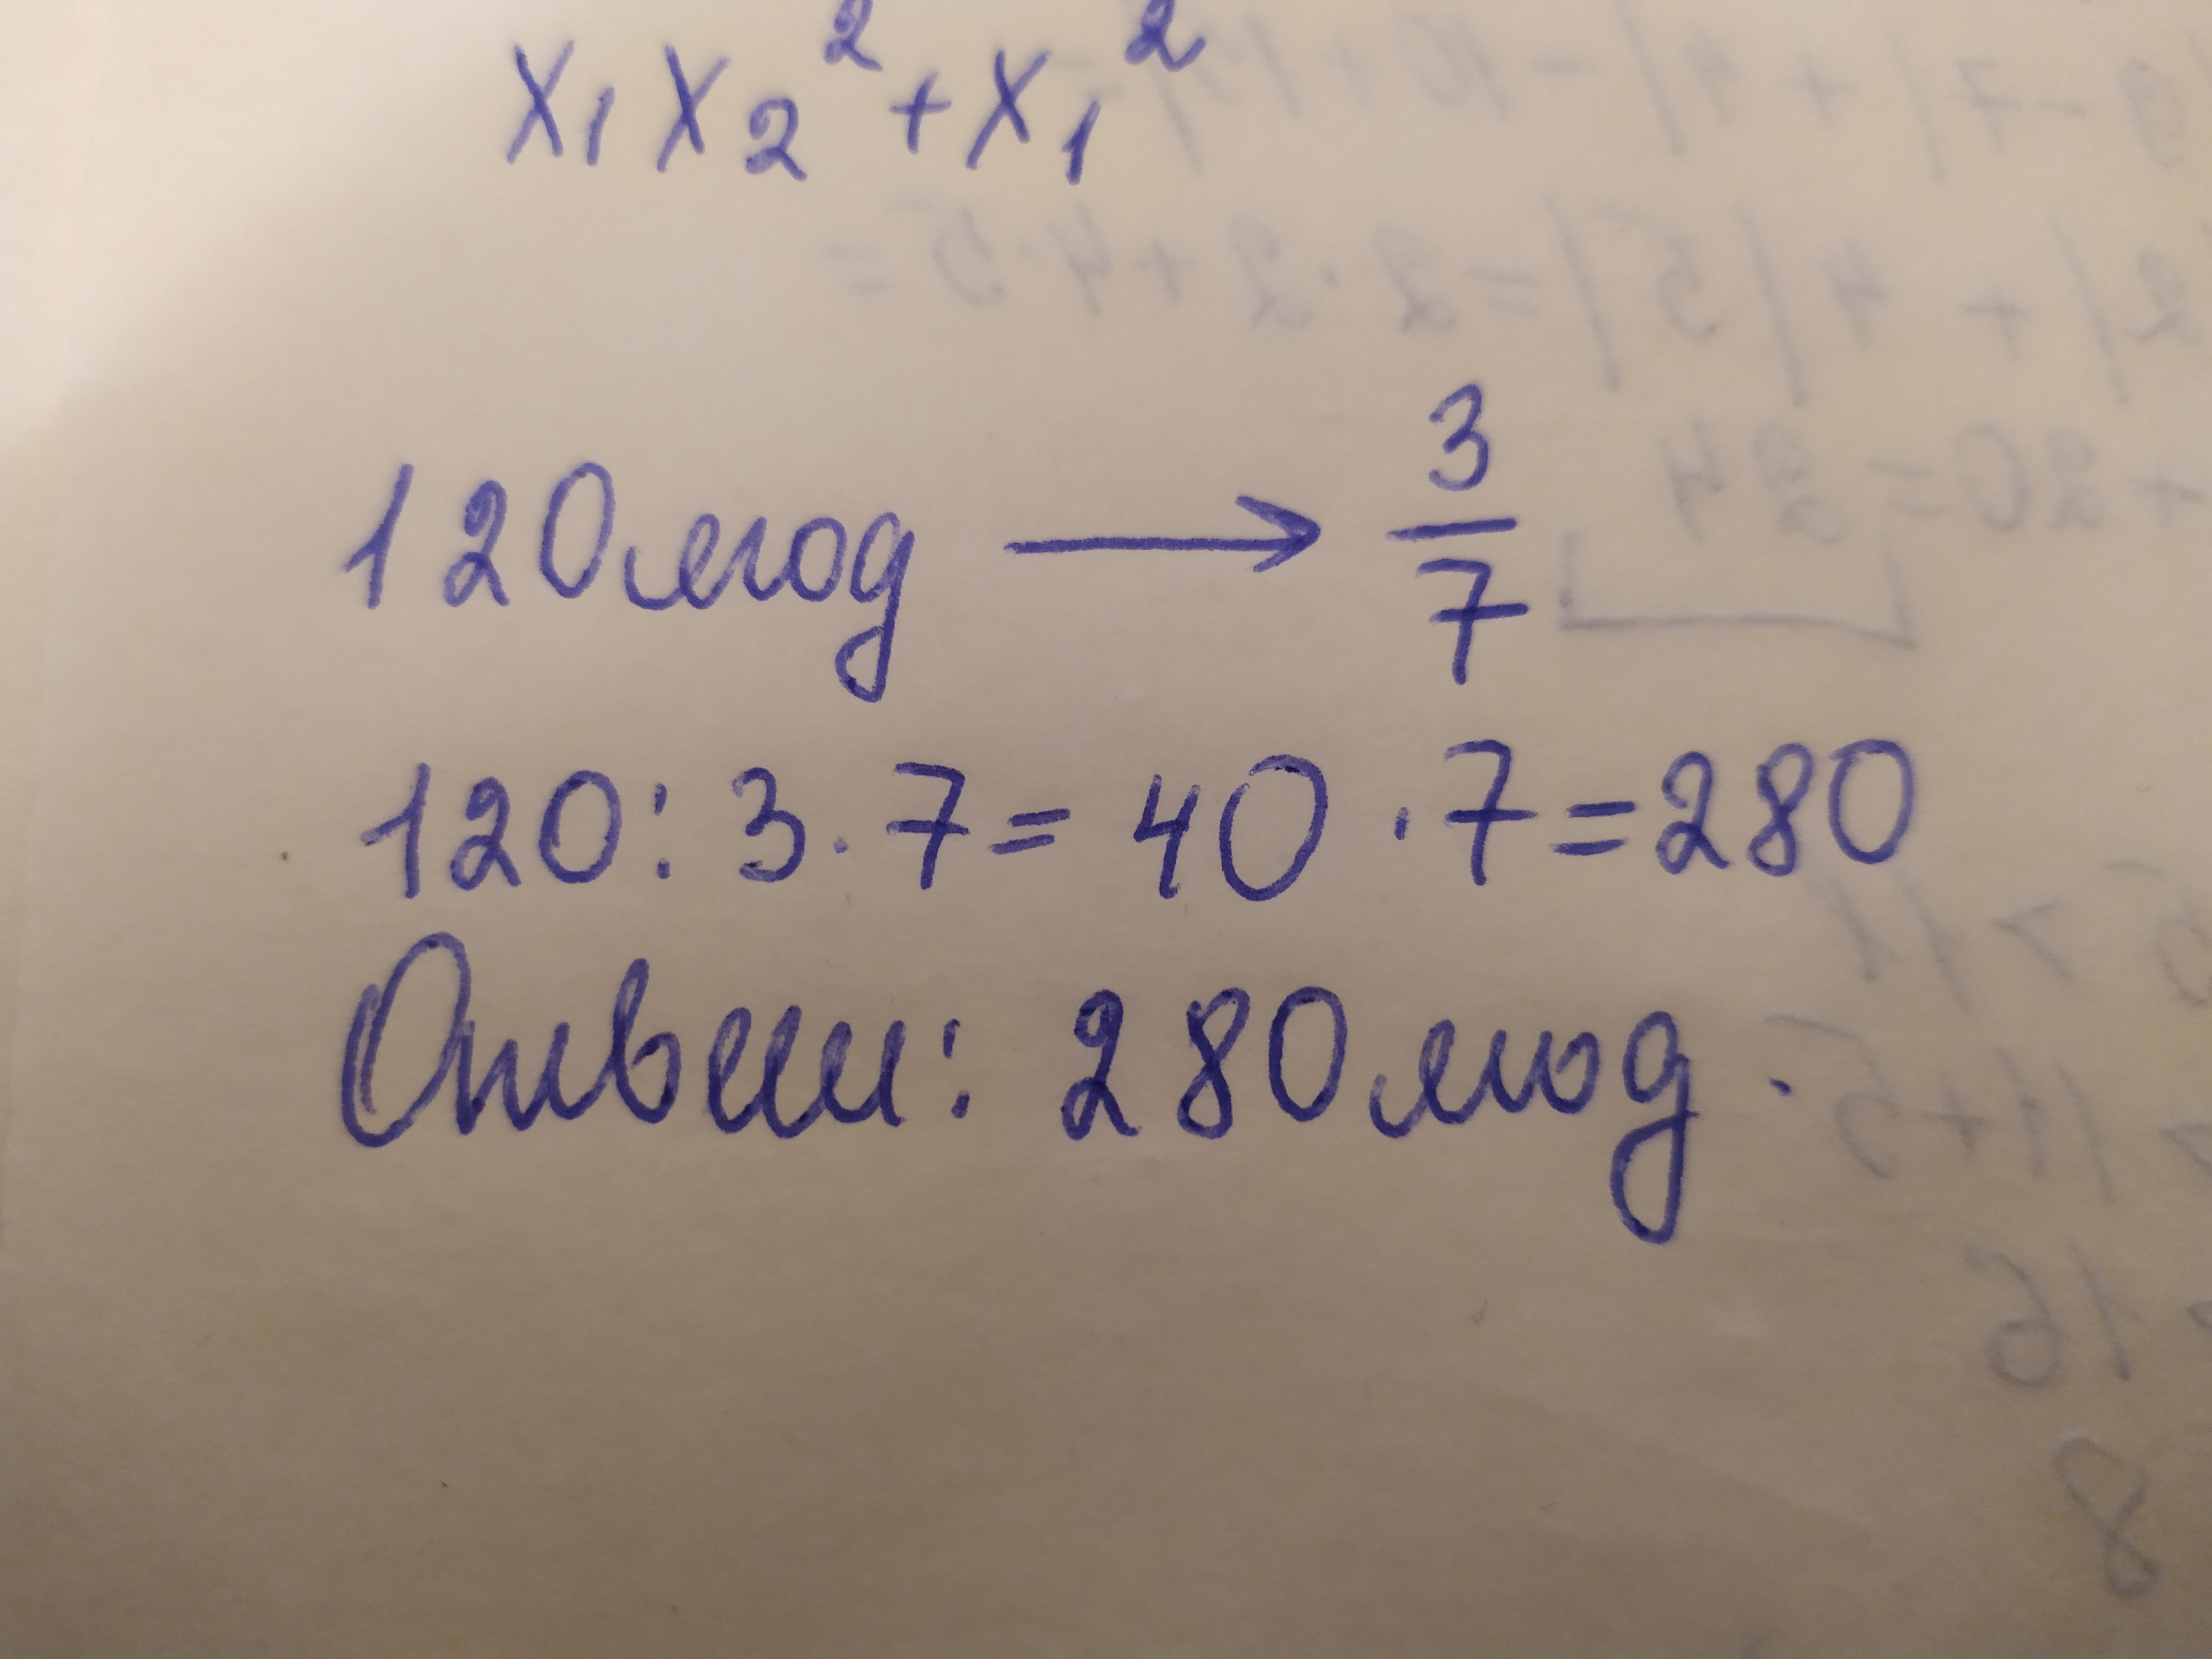 x₁x₂² + x₁²
120 мод → 3/7
120 : 3 · 7 = 40 · 7 = 280
Ответ: 280 мод.